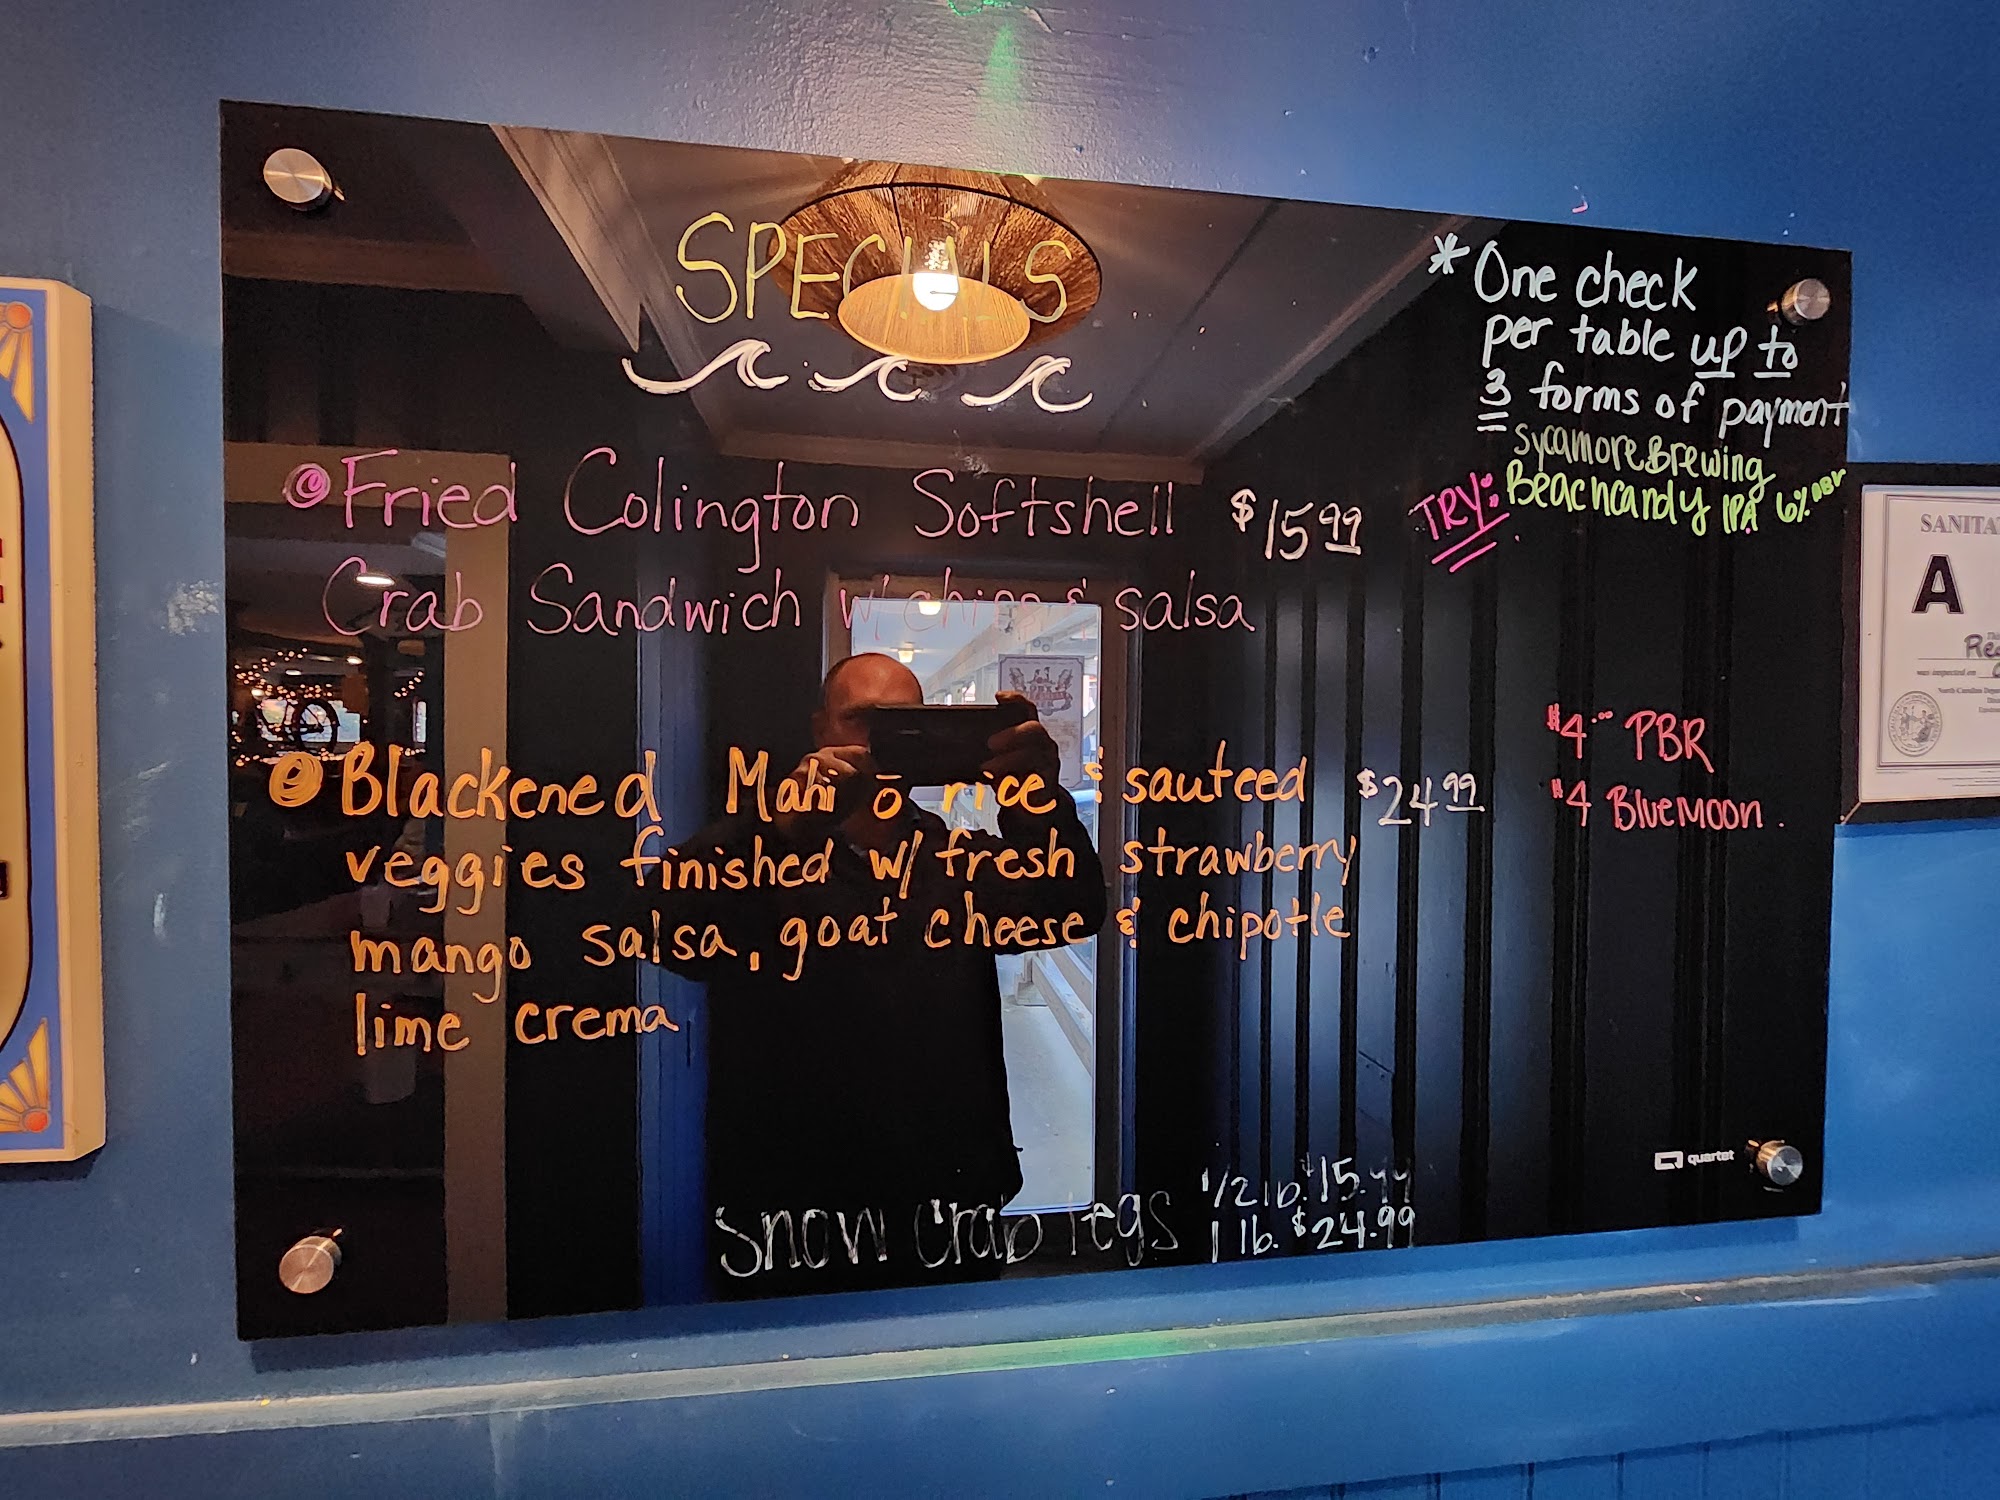 SPECIALS
* One check
per table up to
3 forms of payment
Sycamore Brewing
TRY: Beachcandy IPA 6% ABV
Fried Colington Softshell $15.99
Crab Sandwich w/ chips & salsa
Blackened Mahi c̄ rice & sauteed $24.99
veggies finished w/ fresh strawberry
mango salsa, goat cheese & chipotle
lime crema
$4 PBR
$4 BlueMoon.
Snow Crab legs 1/2 lb. $15.99
1 lb. $24.99
quartet
SANITA
A
was inspected on